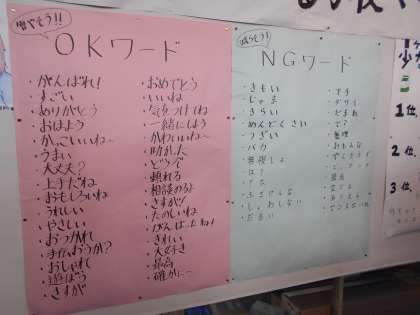 増やそう!!
OKワード
・がんばれ!
・すごい
・ありがとう
・おはよう
・かっこいいね～
・うまい
・大丈夫?
・上手だね
・おもしろいね
・うれしい
・やさしい
・おつかれ
・手伝おうか?
・おしゃれ
・遊ぼう
・さすが
・おめでとう
・いいね
・気をつけてね
・一緒にしよう
・かわいいね～
・助かった
・どうぞ
・頼れる
・相談のるよ
・さすが!!
・たのしいね
・がんばったね!
・きれい
・大好き
・最高
・確かに～
減らそう!
NGワード
・きもい
・じゃま
・きらい
・めんどくさい
・うざい
・バカ
・無視しよ
・は?
・ふざけんな
・だるい
・下手
・ダサイ
・だまれ
・デブ
・無理
1位
2位
3位